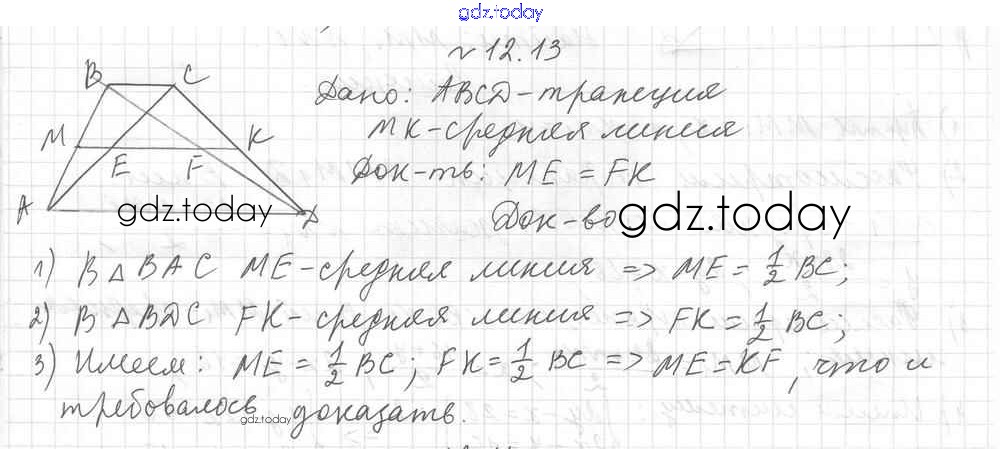 gdz.today
№ 12.13
B C
Дано: ABCD-трапеция
M K
MK-средняя линия
E F
Док-ть: ME = FK
A D
gdz.today
Док-во gdz.today
1) В △ BAC ME-средняя линия => ME = 1/2 BC;
2) В △ BDC FK-средняя линия => FK = 1/2 BC;
3) Имеем: ME = 1/2 BC; FK = 1/2 BC => ME = KF, что и
требовалось gdz.today доказать.